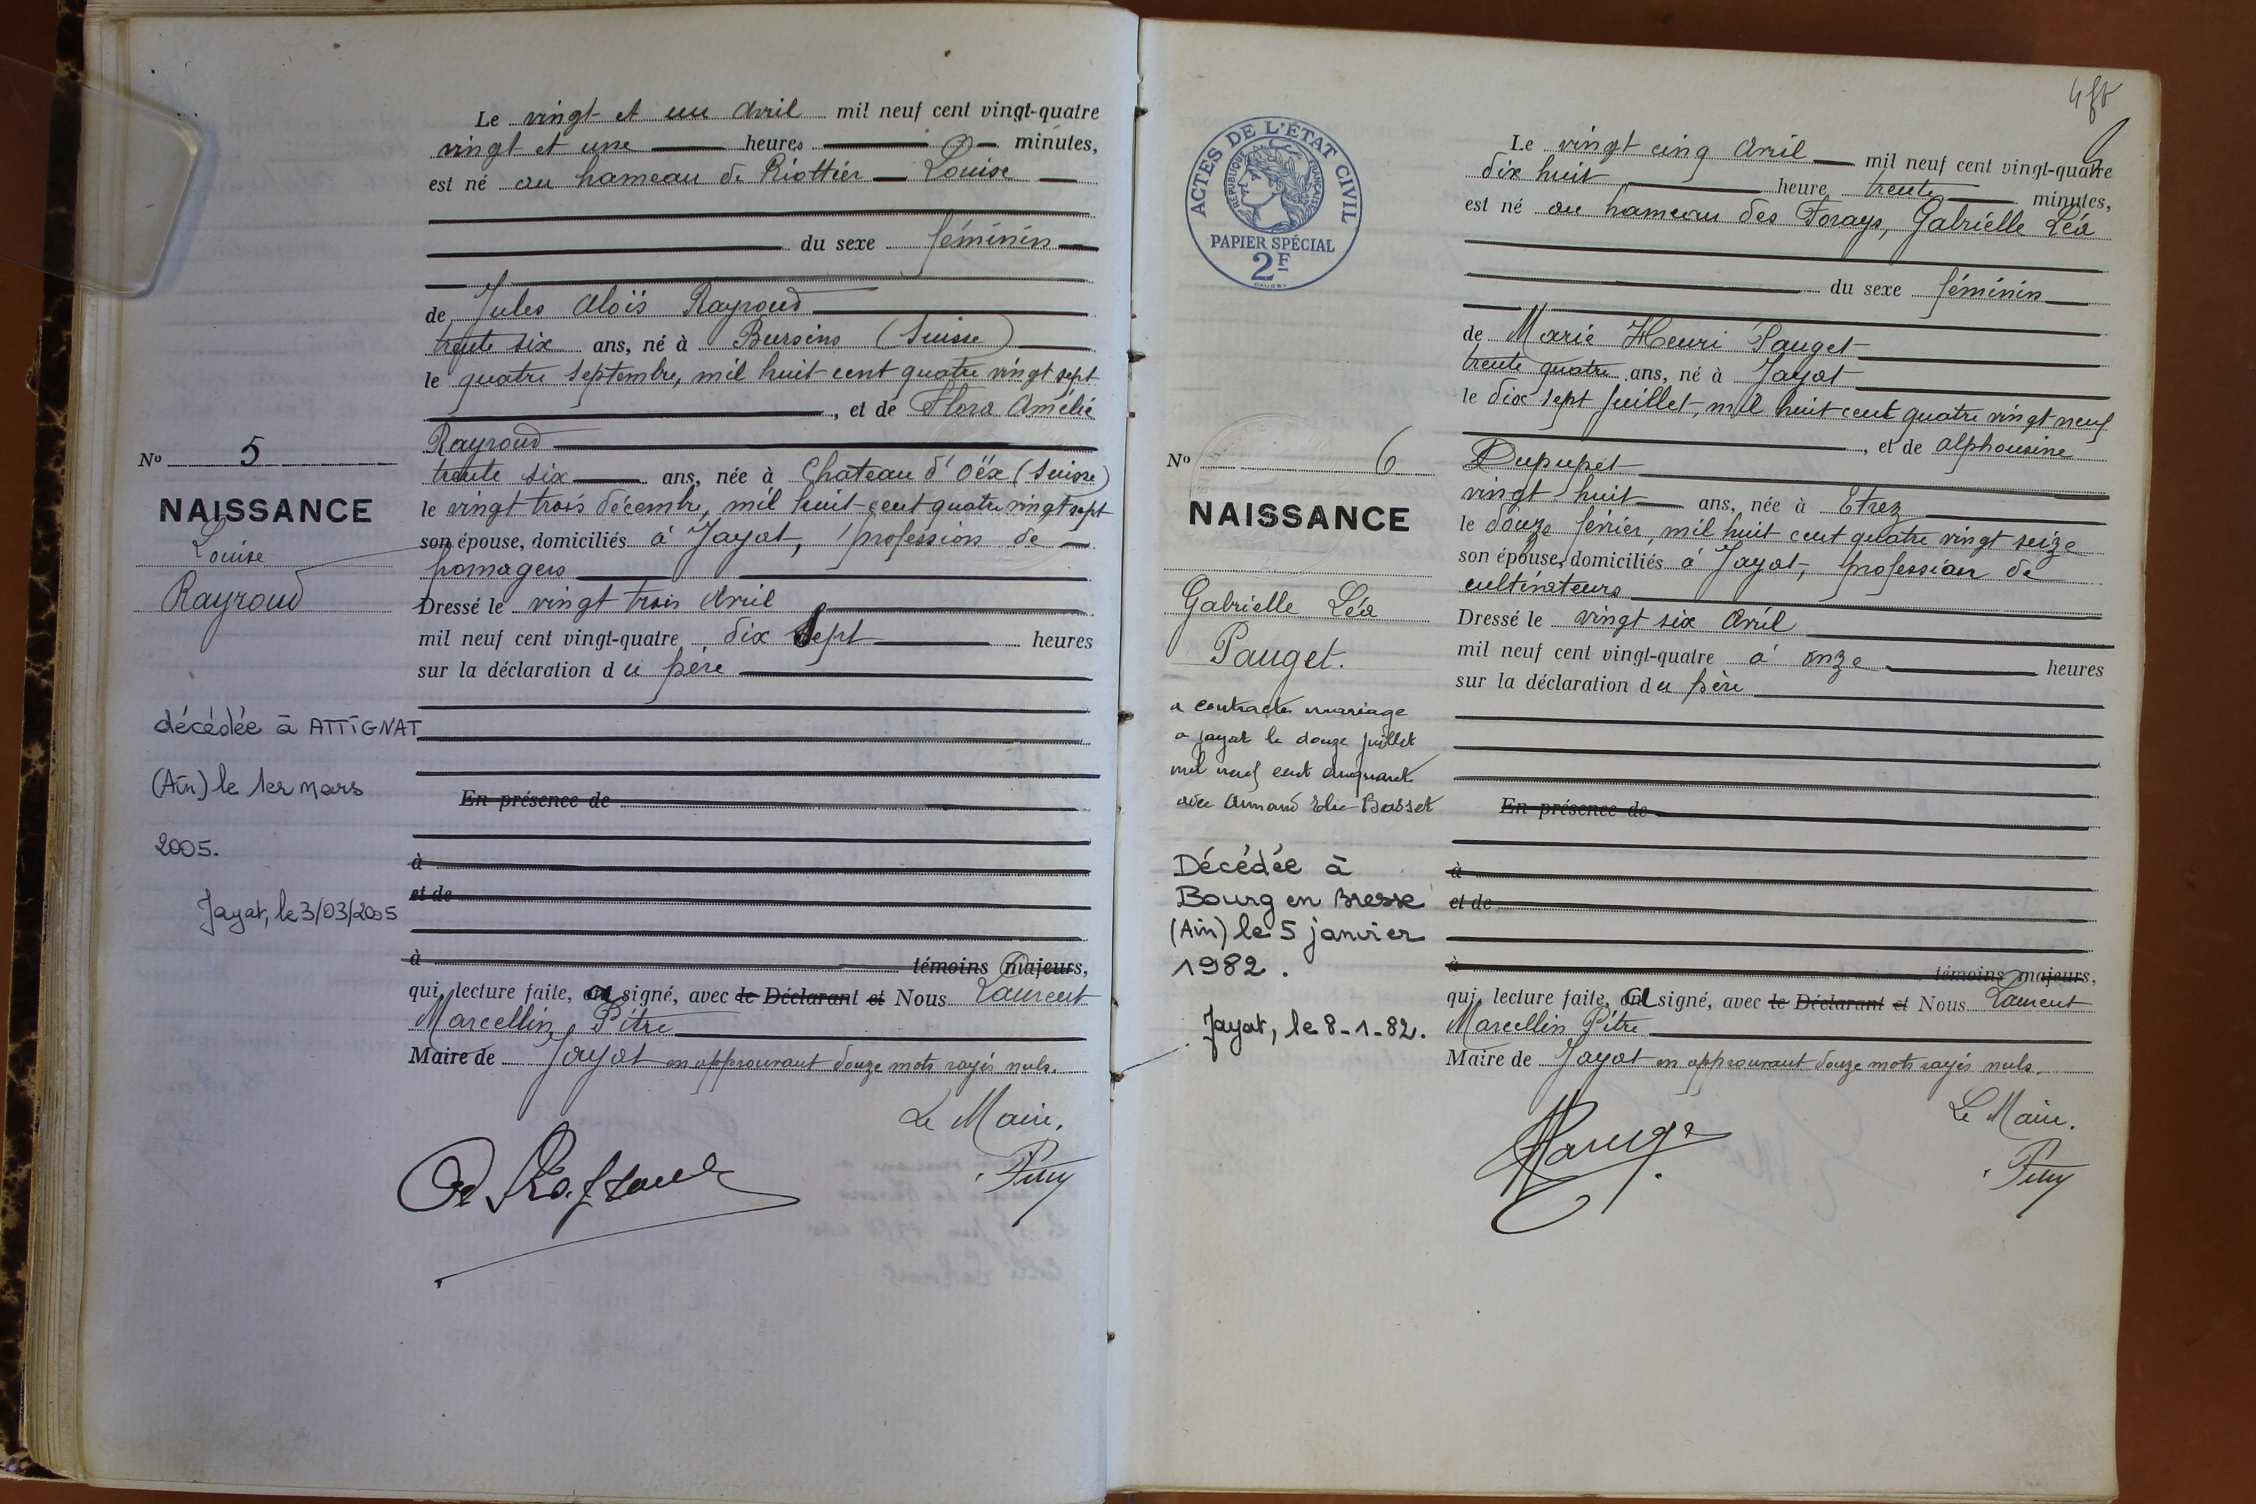 Le vingt et un Avril mil neuf cent vingt-quatre
vingt et une heures minutes,
est né au hameau de Riottier Louise
du sexe féminin
de Jules Aloïs Rayroud
trente six ans, né à Bursins (Suisse)
le quatre septembre, mil huit cent quatre vingt sept
, et de Flora Amélie
Rayroud
trente six ans, née à Chateau d'Oëx (Suisse)
le vingt trois décembre, mil huit cent quatre vingt sept
son épouse, domiciliés à Jayat, profession de
fromagers
Dressé le vingt trois Avril
mil neuf cent vingt-quatre, dix sept heures
sur la déclaration du père
En présence de
à
et de
à témoins majeurs,
qui, lecture faite, a signé, avec le Déclarant et Nous Laurent
Marcellin Pitre
Maire de Jayat en approuvant douze mots rayés nuls.
Le Maire,
No 5
NAISSANCE
Louise
Rayroud
décédée à ATTIGNAT
(Ain) le 1er mars
2005.
Jayat, le 3/03/2005
4
ACTES DE L'ÉTAT CIVIL
RÉPUBLIQUE FRANÇAISE
PAPIER SPÉCIAL
2F
Le vingt cinq Avril mil neuf cent vingt-quatre
dix huit heure trente minutes,
est né au hameau des Forays, Gabrielle Léa
du sexe féminin
de Marie Henri Pauget
trente quatre ans, né à Jayat
le dix sept juillet, mil huit cent quatre vingt neuf
, et de Alphonsine
Dupupet
vingt huit ans, née à Etrez
le douze février, mil huit cent quatre vingt seize
son épouse, domiciliés à Jayat, profession de
cultivateurs
Dressé le vingt six Avril
mil neuf cent vingt-quatre à onze heures
sur la déclaration du père
En présence de
à
et de
à témoins majeurs,
qui, lecture faite, a signé, avec le Déclarant et Nous Laurent
Marcellin Pitre
Maire de Jayat en approuvant douze mots rayés nuls.
Le Maire.
No 6
NAISSANCE
Gabrielle Léa
Pauget.
a contracté mariage
à Jayat le douze juillet
mil neuf cent cinquante
avec Armand Elie Basset
Décédée à
Bourg en Bresse
(Ain) le 5 janvier
1982.
Jayat, le 8-1-82.